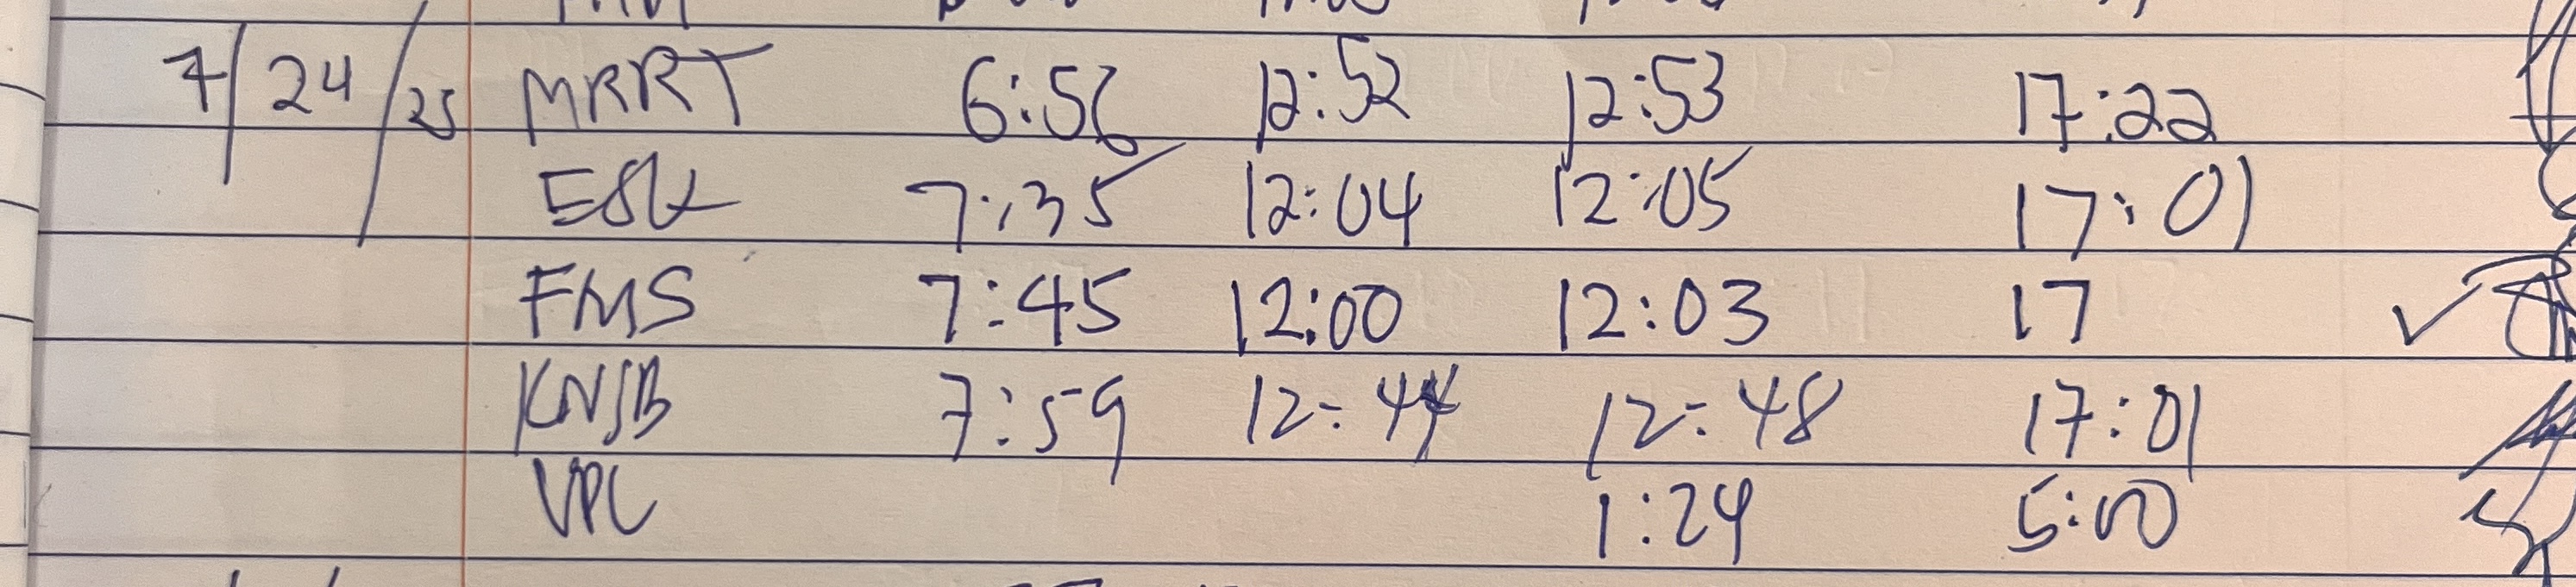 7/24/25 MRRT 6:56 12:52 12:53 17:22
ESK 7:35 12:04 12:05 17:01
FMS 7:45 12:00 12:03 17 ✓
KNJB 7:59 12:44 12:48 17:01
VPC 1:24 5:00